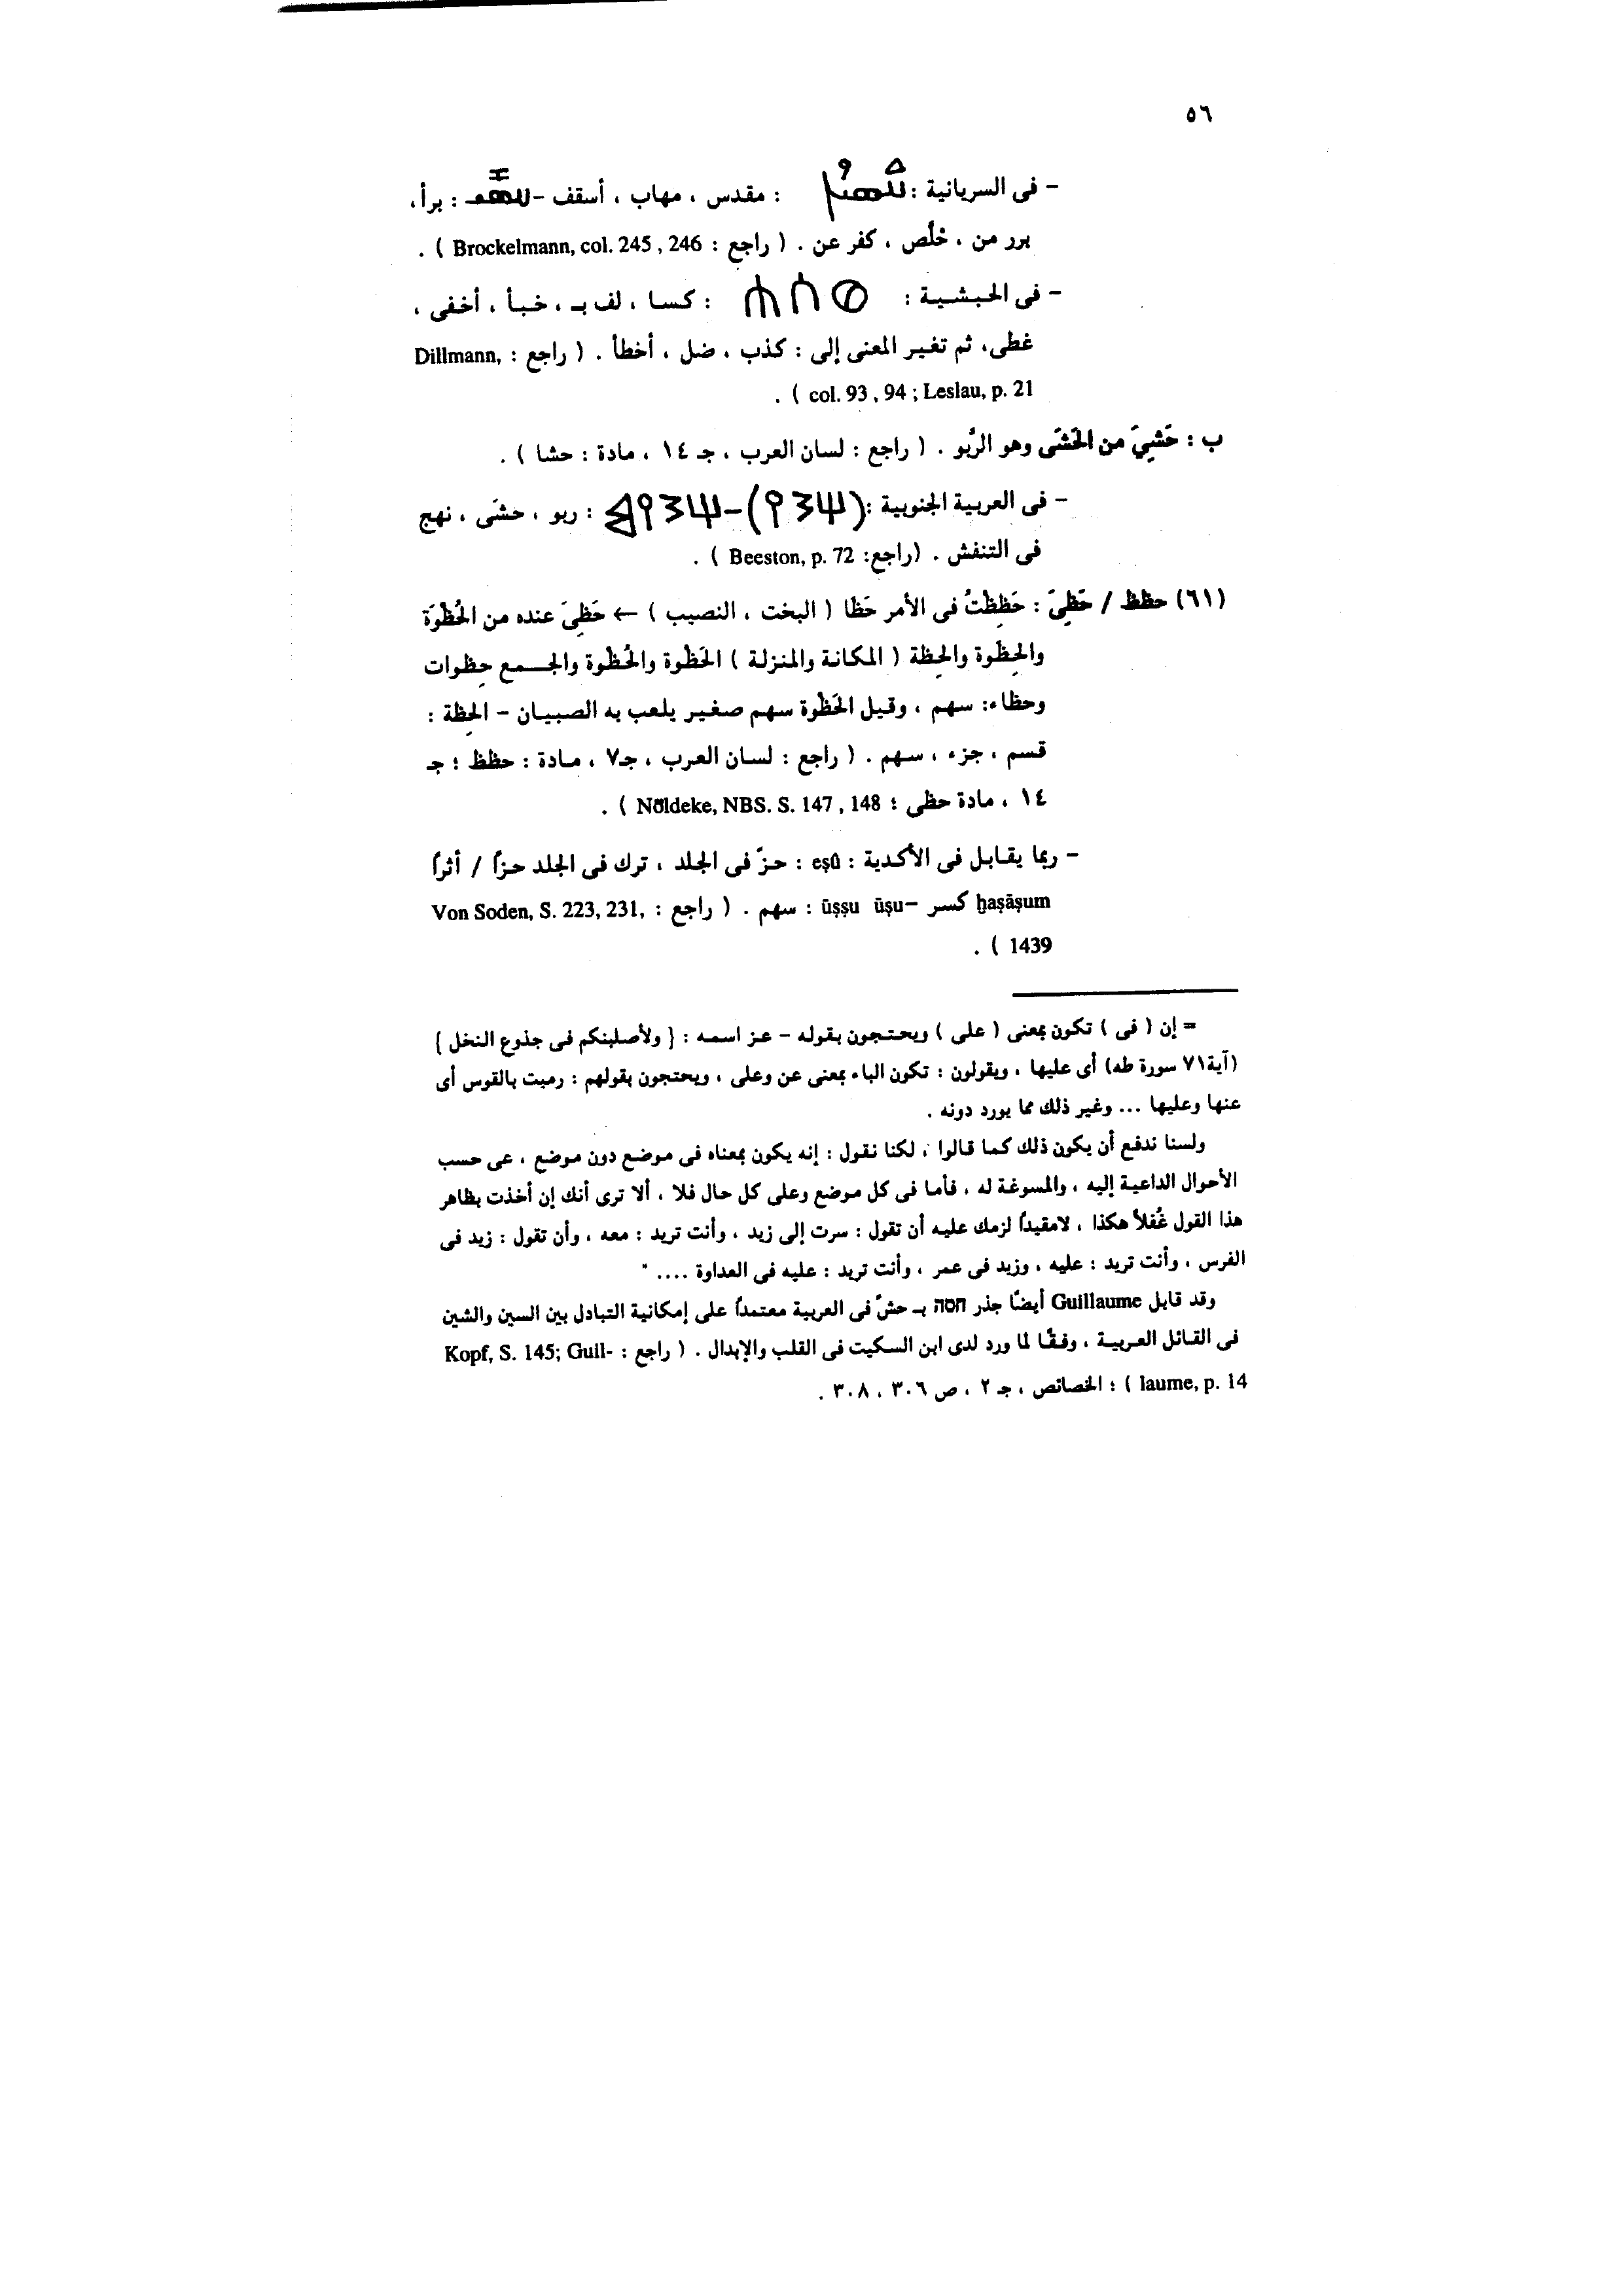 ٥٦
– فى السريانية : : مقدس ، مهاب ، أسقف – : برأ ،
برر من ، خلّص ، كفر عن . ( راجع : Brockelmann, col. 245 , 246 ) .
– فى الحبشية : : كسا ، لف بـ ، خبأ ، أخفى ،
غطى، ثم تغير المعنى إلى : كذب ، ضل ، أخطأ . ( راجع : Dillmann,
col. 93 , 94 ; Leslau, p. 21 ) .
ب : حَشىِيَ من الحَشَى وهو الرَّبو . ( راجع : لسان العرب ، جـ ١٤ ، مادة : حشا ) .
– فى العربية الجنوبية : : ربو ، حشَى ، نهج
فى التنفش . (راجع: Beeston, p. 72 ) .
(٦١) حظظ / حَظِىَ : حَظِظْتُ فى الأمر حَظا ( البخت ، النصيب ) ← حَظِىَ عنده من الحُظْوَة
والحِظْوة والحِظة ( المكانة والمنزلة ) الحَظْوة والحُظْوة والجمع حِظوات
وحظاء: سهم ، وقيل الحَظْوة سهم صغير يلعب به الصبيان – الحِظة :
قسم ، جزء ، سهم . ( راجع : لسان العرب ، جـ٧ ، مادة : حظظ ؛ جـ
١٤ ، مادة حظى ؛ Nöldeke, NBS. S. 147 , 148 ) .
– ربما يقابل فى الأكدية : eṣû : حزّ فى الجلد ، ترك فى الجلد حزاً / أثراً
ḫaṣāṣum كسر –ūṣṣu ūṣu : سهم . ( راجع : Von Soden, S. 223, 231,
1439 ) .
= إن ( فى ) تكون بمعنى ( على ) ويحتجون بقوله – عز اسمه : { ولأصلبنكم فى جذوع النخل }
(آية٧١ سورة طه) أى عليها ، ويقولون : تكون الباء بمعنى عن وعلى ، ويحتجون بقولهم : رميت بالقوس أى
عنها وعليها ... وغير ذلك مما يورد دونه .
ولسنا ندفع أن يكون ذلك كما قالوا ، لكنا نقول : إنه يكون بمعناه فى موضع دون موضع ، عى حسب
الأحوال الداعية إليه ، والمسوغة له ، فأما فى كل موضع وعلى كل حال فلا ، ألا ترى أنك إن أخذت بظاهر
هذا القول غُفلاً هكذا ، لامقيداً لزمك عليه أن تقول : سرت إلى زيد ، وأنت تريد : معه ، وأن تقول : زيد فى
الفرس ، وأنت تريد : عليه ، وزيد فى عمر ، وأنت تريد : عليه فى العداوة .... "
وقد قابل Guillaume أيضًا جذر חסה بـ حشّ فى العربية معتمداً على إمكانية التبادل بين السين والشين
فى القائل العربية ، وفقًا لما ورد لدى ابن السكيت فى القلب والإبدال . ( راجع : Kopf, S. 145; Guil-
laume, p. 14 ) ؛ الخصائص ، جـ ٢ ، ص ٣٠٦ ، ٣٠٨ .